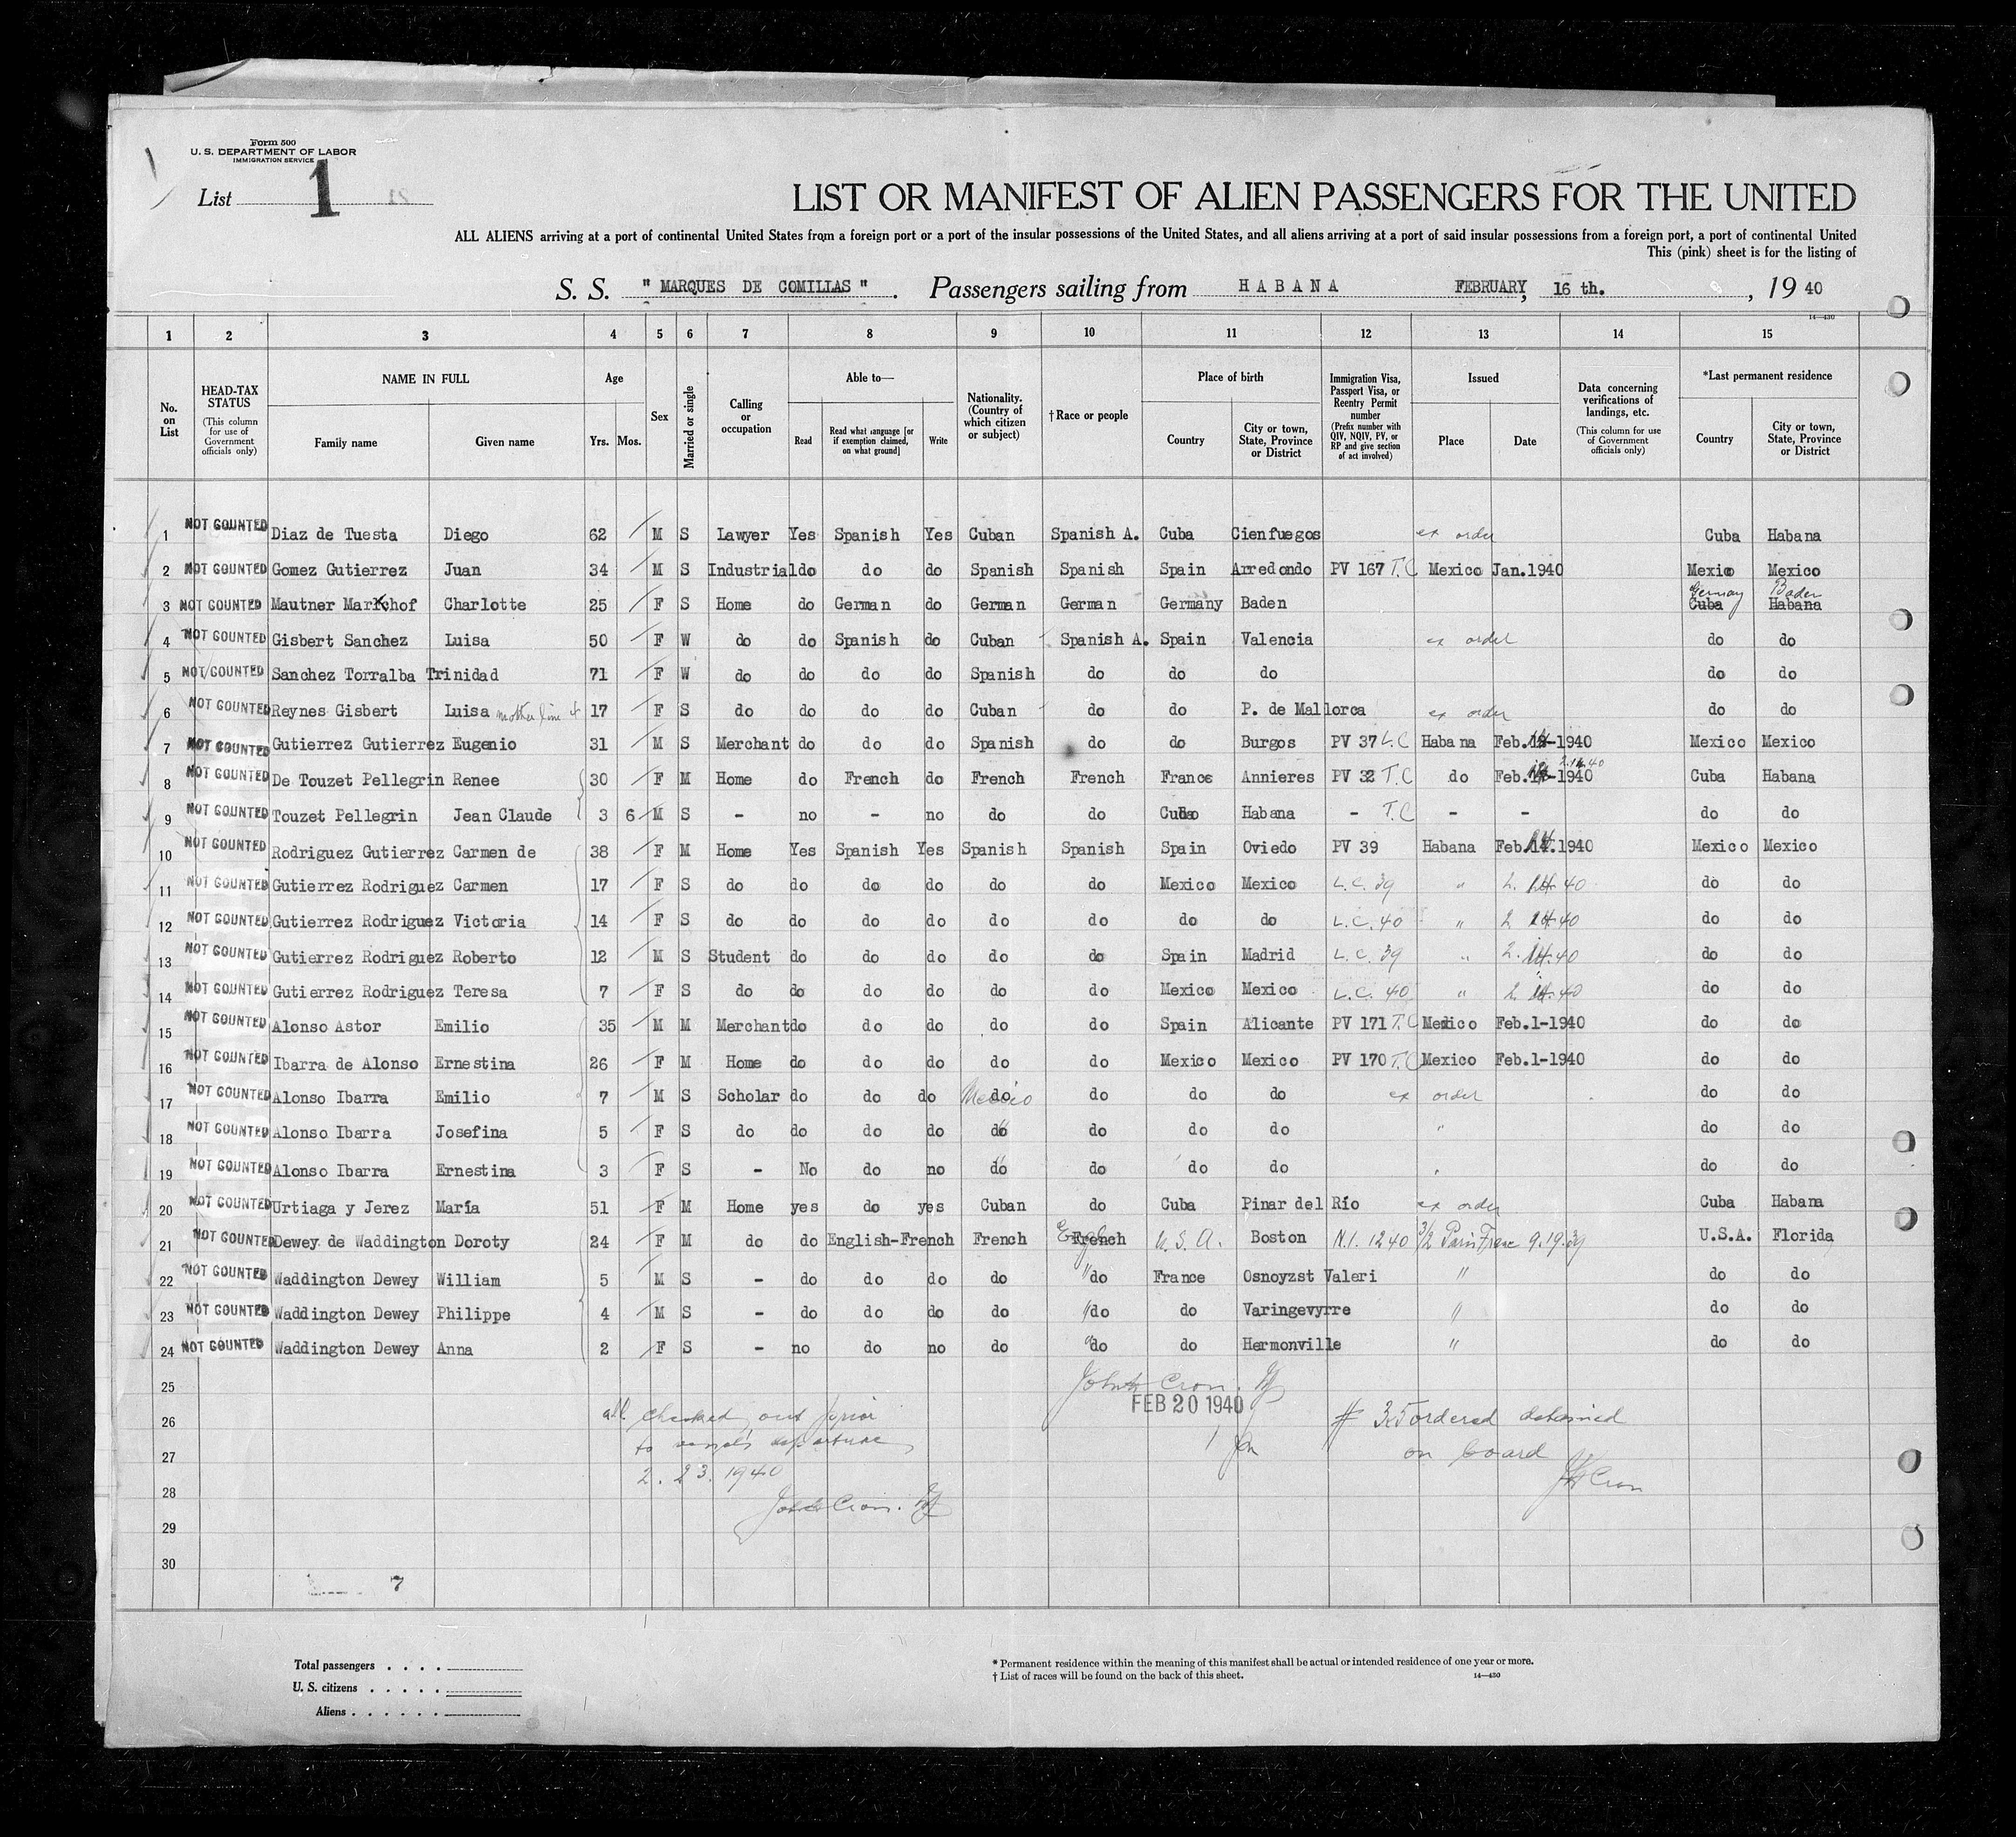 Form 500
U. S. DEPARTMENT OF LABOR
IMMIGRATION SERVICE
List 1
LIST OR MANIFEST OF ALIEN PASSENGERS FOR THE UNITED
ALL ALIENS arriving at a port of continental United States from a foreign port or a port of the insular possessions of the United States, and all aliens arriving at a port of said insular possessions from a foreign port, a port of continental United
This (pink) sheet is for the listing of
S. S. " MARQUES DE COMILLAS ". Passengers sailing from HABANA FEBRUARY, 16 th., 19 40
14—430
1 2 3 4 5 6 7 8 9 10 11 12 13 14 15
No. on List
HEAD-TAX STATUS (This column for use of Government officials only)
NAME IN FULL Family name Given name
Age Yrs. Mos.
Sex
Married or single
Calling or occupation
Able to— Read Read what language [or if exemption claimed, on what ground] Write
Nationality. (Country of which citizen or subject)
†Race or people
Place of birth Country City or town, State, Province or District
Immigration Visa, Passport Visa, or Reentry Permit number (Prefix number with QIV, NQIV, PV, or RP and give section of act involved)
Issued Place Date
Data concerning verifications of landings, etc. (This column for use of Government officials only)
*Last permanent residence Country City or town, State, Province or District
1 NOT COUNTED Diaz de Tuesta Diego 62 M S Lawyer Yes Spanish Yes Cuban Spanish A. Cuba Cienfuegos ex order Cuba Habana
2 NOT COUNTED Gomez Gutierrez Juan 34 M S Industrial do do do Spanish Spanish Spain Arredondo PV 167 T.C Mexico Jan.1940 Mexico Mexico
Germany Baden
3 NOT COUNTED Mautner Markhof Charlotte 25 F S Home do German do German German Germany Baden Cuba Habana
4 NOT COUNTED Gisbert Sanchez Luisa 50 F W do do Spanish do Cuban Spanish A. Spain Valencia ex order do do
5 NOT COUNTED Sanchez Torralba Trinidad 71 F W do do do do Spanish do do do do do
6 NOT COUNTED Reynes Gisbert Luisa mother line 4 17 F S do do do do Cuban do do P. de Mallorca ex order do do
7 NOT COUNTED Gutierrez Gutierrez Eugenio 31 M S Merchant do do do Spanish do do Burgos PV 37 L.C Habana Feb.14-1940 Mexico Mexico
8 NOT COUNTED De Touzet Pellegrin Renee 30 F M Home do French do French French France Annieres PV 32 T.C do Feb.-1940 2.14.40 Cuba Habana
9 NOT COUNTED Touzet Pellegrin Jean Claude 3 6 M S - no - no do do Cuba Habana - T.C - - do do
10 NOT COUNTED Rodriguez Gutierrez Carmen de 38 F M Home Yes Spanish Yes Spanish Spanish Spain Oviedo PV 39 Habana Feb.14.1940 Mexico Mexico
11 NOT COUNTED Gutierrez Rodriguez Carmen 17 F S do do do do do do Mexico Mexico L.C. 39 " 2. 14. 40 do do
12 NOT COUNTED Gutierrez Rodriguez Victoria 14 F S do do do do do do do do L.C. 40 " 2 14 40 do do
13 NOT COUNTED Gutierrez Rodriguez Roberto 12 M S Student do do do do do Spain Madrid L.C. 39 " 2. 14. 40 do do
14 NOT COUNTED Gutierrez Rodriguez Teresa 7 F S do do do do do do Mexico Mexico L.C. 40 " 2. 14. 40 do do
15 NOT COUNTED Alonso Astor Emilio 35 M M Merchant do do do do do Spain Alicante PV 171 T.C Mexico Feb.1-1940 do do
16 NOT COUNTED Ibarra de Alonso Ernestina 26 F M Home do do do do do Mexico Mexico PV 170 T.C Mexico Feb.1-1940 do do
17 NOT COUNTED Alonso Ibarra Emilio 7 M S Scholar do do do do Mexico do do do ex order do do
18 NOT COUNTED Alonso Ibarra Josefina 5 F S do do do do do " do do do " do do
19 NOT COUNTED Alonso Ibarra Ernestina 3 F S - No do no do " do do do " do do
20 NOT COUNTED Urtiaga y Jerez María 51 F M Home yes do yes Cuban do Cuba Pinar del Río ex order Cuba Habana
21 NOT COUNTED Dewey de Waddington Doroty 24 F M do do English-French French French U.S.A. Boston N.I. 1240 3/2 Paris France 9.19.39 U.S.A. Florida
22 NOT COUNTED Waddington Dewey William 5 M S - do do do do " do France Osnoyzst Valeri " do do
23 NOT COUNTED Waddington Dewey Philippe 4 M S - do do do do " do do Varingevyrre " do do
24 NOT COUNTED Waddington Dewey Anna 2 F S - no do no do " do do Hermonville " do do
25
26 all checked out prior FEB 20 1940 # 3&5 ordered detained
27 to vessel's departure on board
28 2. 23. 1940
29
30
7
Total passengers
U. S. citizens
Aliens
* Permanent residence within the meaning of this manifest shall be actual or intended residence of one year or more.
† List of races will be found on the back of this sheet. 14—430